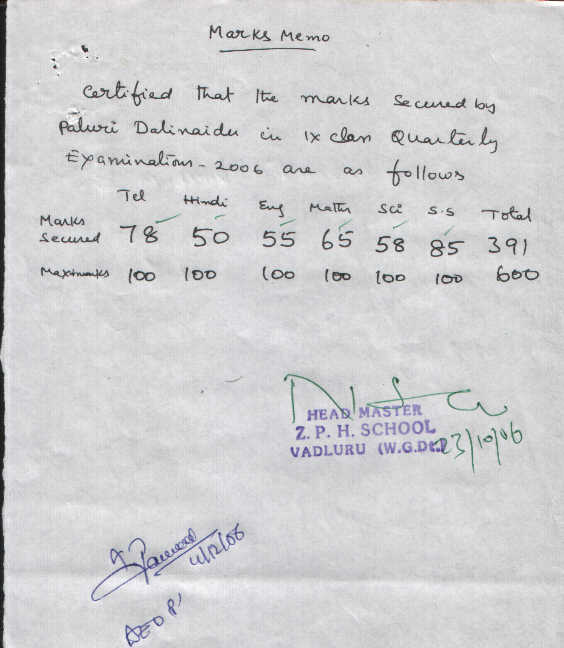 Marks Memo
Certified that the marks Secured by
Paluri Dalinaidu in IX class Quarterly
Examination - 2006 are as follows
Tel Hindi Eng Maths Sci S.S Total
Marks
Secured 78 50 55 65 58 85 391
Maximarks 100 100 100 100 100 100 600
HEAD MASTER
Z. P. H. SCHOOL
VADLURU (W.G.Dt.)
23/10/06
4/12/06